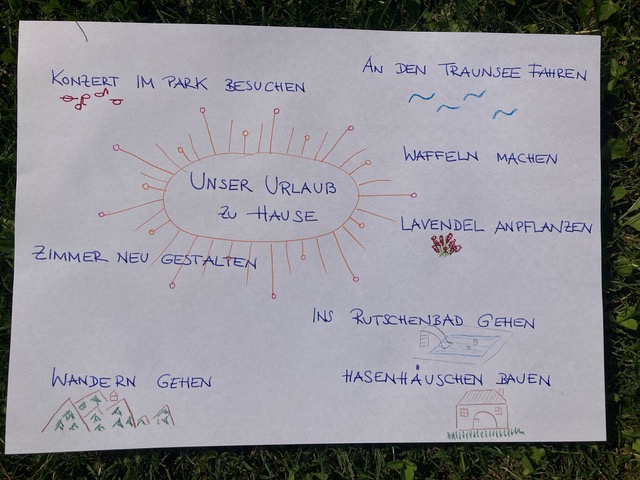 KONZERT IM PARK BESUCHEN
AN DEN TRAUNSEE FAHREN
WAFFELN MACHEN
UNSER URLAUB
ZU HAUSE
LAVENDEL ANPFLANZEN
ZIMMER NEU GESTALTEN
INS RUTSCHENBAD GEHEN
WANDERN GEHEN
HASENHÄUSCHEN BAUEN